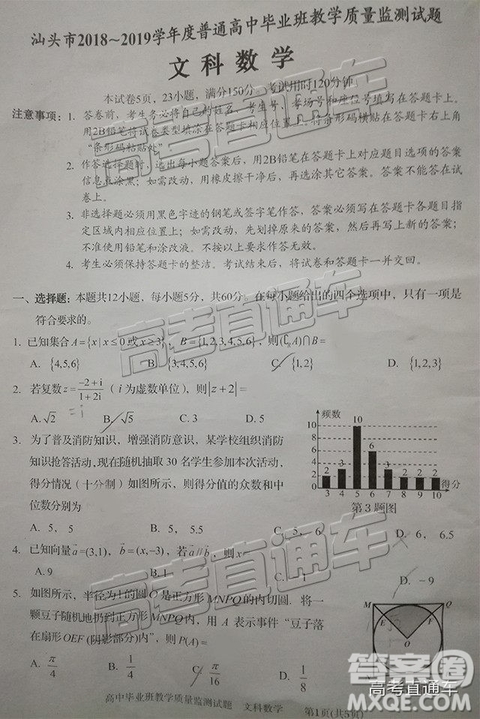 汕头市2018～2019学年度普通高中毕业班教学质量监测试题
文科数学
本试卷5页，23小题，满分150分。考试用时120分钟。
注意事项：1. 答卷前，考生务必将自己的姓名、考生号、考场号和座位号填写在答题卡上。
用2B铅笔将试卷类型填涂在答题卡相应位置上。将条形码横贴在答题卡右上角
“条形码粘贴处”
2. 作答选择题时，选出每小题答案后，用2B铅笔在答题卡上对应题目选项的答案
信息点涂黑；如需改动，用橡皮擦干净后，再选涂其它答案。答案不能答在试
卷上。
3. 非选择题必须用黑色字迹的钢笔或签字笔作答，答案必须写在答题卡各题目指
定区域内相应位置上；如需改动，先划掉原来的答案，然后再写上新的答案；
不准使用铅笔和涂改液。不按以上要求作答无效。
4. 考生必须保持答题卡的整洁。考试结束后，将试卷和答题卡一并交回。
一、选择题：本题共12小题，每小题5分，共60分。在每小题给出的四个选项中，只有一项是
符合要求的。
1. 已知集合A={x|x≤0或x≥3}，B={1,2,3,4,5,6}，则(∁A)∩B=
A. {4,5,6} B. {3,4,5,6} C. {1,2} D. {1,2,3}
2. 若复数z=(-2+i)/(1+2i)（i为虚数单位），则|z+2|=
=i
A. √2 B. √3 C. √5
3. 为了普及消防知识，增强消防意识，某学校组织消防
知识抢答活动，现在随机抽取30名学生参加本次活动，
得分情况（十分制）如图所示，则得分值的众数和中
位数分别为
频数
10
6
3 3
2 2 2 2
3 4 5 6 7 8 9 10
第3题图
A. 5，5 B. 5，5.5 D. 6，6.5
4. 已知向量a=(3,1)，b=(x,-3)，若a//b，则x=
A. 9 B. 1 D. -9
5. 如图所示，半径为1的圆O是正方形MNPQ的内切圆．将一
颗豆子随机地扔到正方形MNPQ内，用A表示事件“豆子落
在扇形OEF(阴影部分)内”，则P(A)=
M E Q
O
A. π/4 B. 1/4 C. π/16 D. 1/8
高中毕业班教学质量监测试题 文科数学 第1页(共5页)
高考直通车
高考直通车
高考直通车
答案圈
高考直通车